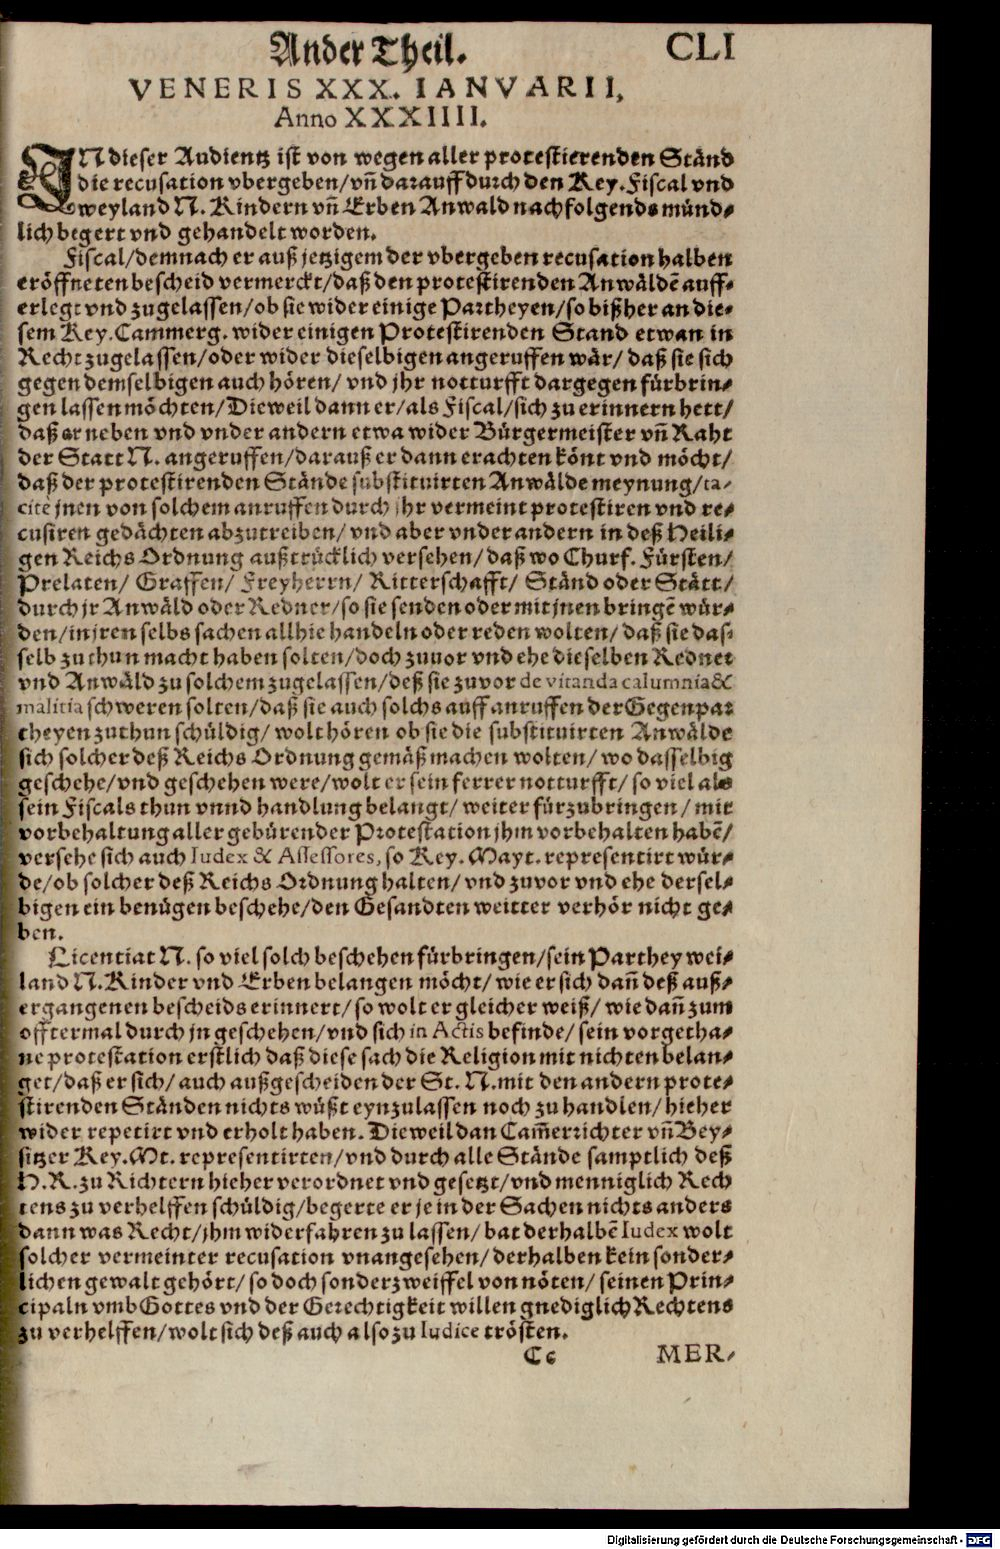 Ander Theil. CLI
VENERIS XXX. IANVARII,
Anno XXXIIII.
IN dieser Audientz ist von wegen aller protestierenden Ständ
die recusation vbergeben/vñ darauff durch den Key. Fiscal vnd
weyland N. Kindern vñ Erben Anwald nachfolgends münd-
lich begert vnd gehandelt worden.
Fiscal/demnach er auß jetzigem der vbergeben recusation halben
eröffneten bescheid vermerckt/daß den protestirenden Anwäldẽ auff-
erlegt vnd zugelassen/ob sie wider einige Partheyen/so bißher an die-
sem Key. Cammerg. wider einigen Protestirenden Stand etwan in
Recht zugelassen/oder wider dieselbigen angeruffen wär/ daß sie sich
gegen demselbigen auch hören/ vnd jhr notturfft dargegen fürbrin-
gen lassen möchten/Dieweil dann er/als Fiscal/sich zu erinnern hett/
daß er neben vnd vnder andern etwa wider Bürgermeister vñ Raht
der Statt N. angeruffen/darauß er dann erachten könt vnd möcht/
daß der protestirenden Stände substituirten Anwälde meynung/ta-
citè jnen von solchem anruffen durch jhr vermeint protestiren vnd re-
cusiren gedächten abzutreiben/ vnd aber vnder andern in deß Heili-
gen Reichs Ordnung außtrücklich versehen/daß wo Churf. Fürsten/
Prelaten/ Graffen/ Freyherrn/ Ritterschafft/ Ständ oder Stätt/
durch jr Anwäld oder Redner/so sie senden oder mit jnen bringẽ wür-
den/in jren selbs sachen allhie handeln oder reden wolten/ daß sie das-
selb zu thun macht haben solten/doch zuuor vnd ehe dieselben Redner
vnd Anwäld zu solchem zugelassen/deß sie zuvor de vitanda calumnia &
malitia schweren solten/daß sie auch solchs auff anruffen der Gegenpar
theyen zuthun schüldig/ wolt hören ob sie die substituirten Anwälde
sich solcher deß Reichs Ordnung gemäß machen wolten/ wo dasselbig
geschehe/vnd geschehen were/wolt er sein ferrer notturfft/ so viel als
sein Fiscals thun vnnd handlung belangt/ weiter fürzubringen / mit
vorbehaltung aller gebürender Protestation jhm vorbehalten habẽ/
versehe sich auch Iudex & Assessores, so Key. Mayt. representirt wür-
de/ob solcher deß Reichs Ordnung halten/ vnd zuvor vnd ehe dersel-
bigen ein benügen beschehe/den Gesandten weitter verhör nicht ge-
ben.
Licentiat N. so viel solch beschehen fürbringen/sein Parthey wei-
land N. Kinder vnd Erben belangen möcht/ wie er sich dañ deß auß-
ergangenen bescheids erinnert/ so wolt er gleicher weiß/ wie dañ zum
offtermal durch jn geschehen/vnd sich in Actis befinde/ sein vorgetha-
ne protestation erstlich daß diese sach die Religion mit nichten belan-
get/daß er sich/ auch außgescheiden der St. N. mit den andern prote-
stirenden Ständen nichts wüßt eynzulassen noch zu handlen/ hieher
wider repetirt vnd erholt haben. Dieweil dan Cam̃errichter vñ Bey-
sitzer Key. Mt. representirten/vnd durch alle Stände samptlich deß
H. R. zu Richtern hieher verordnet vnd gesetzt/vnd menniglich Rech
tens zu verhelffen schüldig/begerte er je in der Sachen nichts anders
dann was Recht/jhm widerfahren zu lassen/ bat derhalbẽ Iudex wolt
solcher vermeinter recusation vnangesehen/ derhalben kein sonder-
lichen gewalt gehört/ so doch sonder zweiffel von nöten/ seinen Prin-
cipaln vmb Gottes vnd der Gerechtigkeit willen gnediglich Rechtens
zu verhelffen/wolt sich deß auch also zu Iudice trösten.
Cc MER-
Digitalisierung gefördert durch die Deutsche Forschungsgemeinschaft - DFG